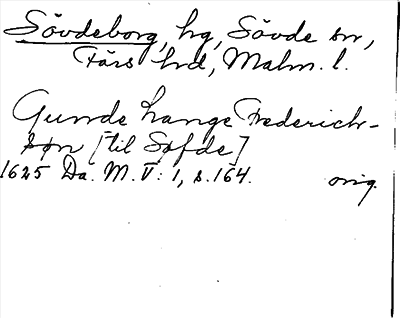 Sövdeborg, hg, Sövde sn,
Färs hd, Malm. l.
Gunde Lange Frederich-
søn [til Søfde]
1625 Da. M. V: 1, s. 164. orig.